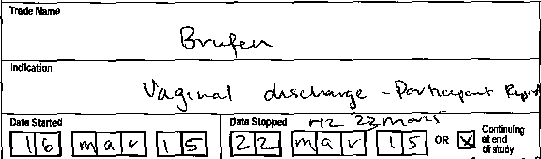 Trade Name
Brufen
Indication
Vaginal discharge - Participant Report
Date Started
Date Stopped
16 mar 15
22 mar 15 OR ☒ Continuing at end of study